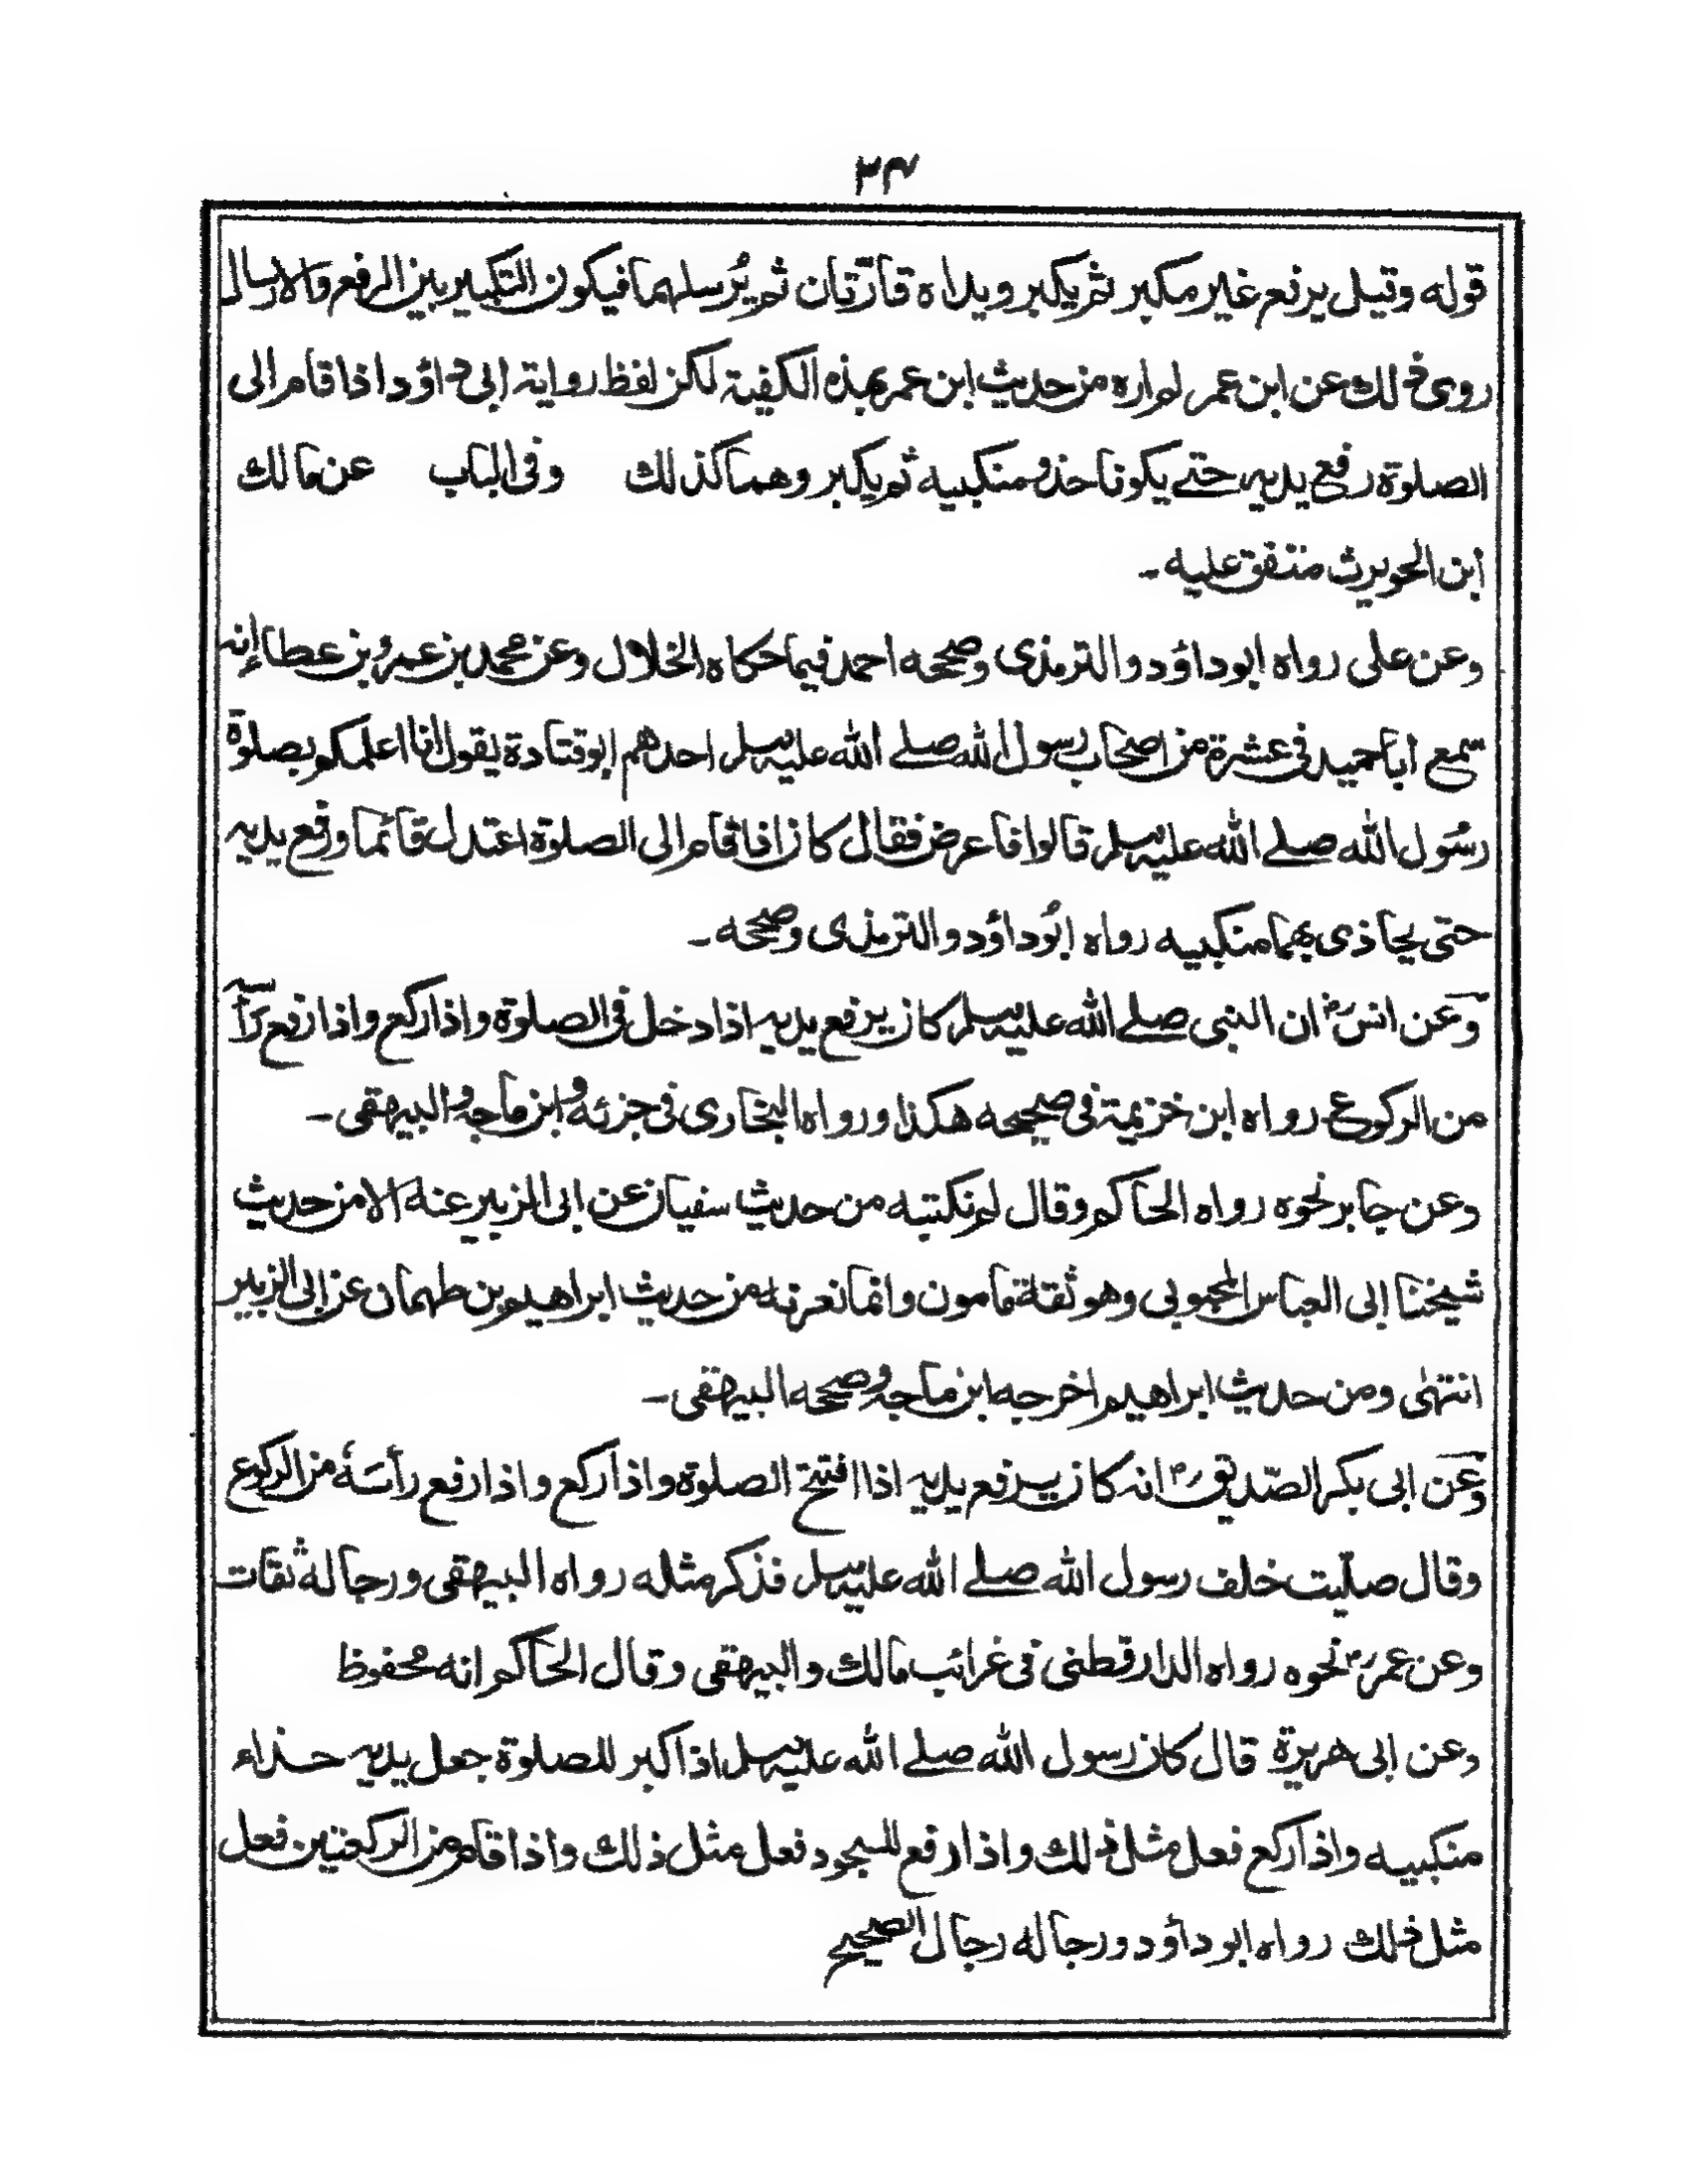 ٣٤
قوله وقيل يرفع غير مكبر ثم يكبر ويداه قارّتان ثم يُرسلهما فيكون التكبير بين الرفع والارسال
روى ذلك عن ابن عمر لم اره من حديث ابن عمر بهذه الكيفية لكن لفظ رواية ابى داؤد اذا قام الى
الصلوة رفع يديه حتے يكونا حذو منكبيه ثم يكبر وهما كذلك وفى الباب عن مالك
ابن الحويرث متفق عليه ـ
وعن على رواه ابو داؤد والترمذى وصححه احمد فيما حكاه الخلال وعن محمد بن عمرو بن عطا إنه
سمع ابا حميد فى عشرة من اصحاب رسول الله صلے الله عليه وسلم احدهم ابو قتادة يقول انا اعلمكم بصلوة
رسُول الله صلے الله عليه وسلم قالوا فاعرض فقال كان اذا قام الى الصلوة اعتدل قائما ورفع يديه
حتى يحاذى بهما منكبيه رواه ابُو داؤد والترمذى وصححه ـ
وعن انس رض ان النبى صلے الله عليه وسلم كان يرفع يديه اذا دخل فى الصلوة واذا ركع واذا رفع رأسه
من الركوع رواه ابن خزيمة فى صحيحه هكذا ورواه البخارى فى جزئه وابن ماجه والبيهقى ـ
وعن جابر نحوه رواه الحاكم وقال لم نكتبه من حديث سفيان عن ابى الزبير عنه الا من حديث
شيخنا ابى العباس المحبوبى وهو ثقة مامون وانما نعرفه من حديث ابراهيم بن طهمان عن ابى الزبير
انتهٰى ومن حديث ابراهيم اخرجه ابن ماجه وصححه البيهقى ـ
وعن ابى بكر الصّديق رض انه كان يرفع يديه اذا افتتح الصلوة واذا ركع واذا رفع رأسَهٗ من الركوع
وقال صلّيت خلف رسول الله صلے الله عليه وسلم فذكر مثله رواه البيهقى ورجاله ثقات
وعن عمر رض نحوه رواه الدارقطنى فى غرائب مالك والبيهقى وقال الحاكم انه محفوظ
وعن ابى هريرة قال كان رسول الله صلے الله عليه وسلم اذا كبر للصلوة جعل يديه حذاء
منكبيه واذا ركع فعل مثل ذلك واذا رفع للسجود فعل مثل ذلك واذا قام من الركعتين فعل
مثل ذلك رواه ابو داؤد ورجاله رجال الصحيح